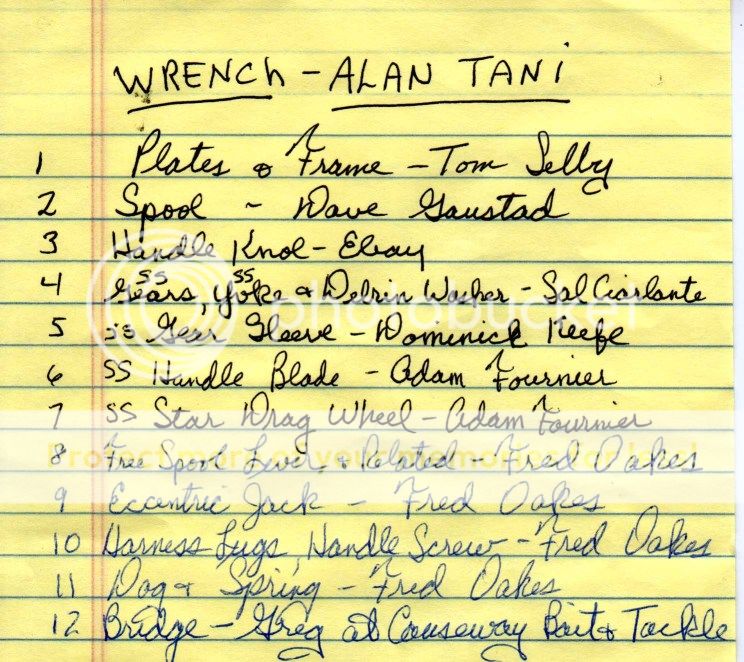 WRENCH - ALAN TANI
1 Plates & Frame - Tom Selby
2 Spool ~ Dave Gaustad
3 Handle Knol - Ebay
4 SS Gears, SS Yoke & Delrin Washer - Sal Ciarlante
5 SS Gear Sleeve - Dominick Keefe
6 SS Handle Blade - Adam Fournier
7 SS Star Drag Wheel - Adam Fournier
8 Free Spool Lever & Related - Fred Oakes
9 Eccentric Jack - Fred Oakes
10 Harness Lugs, Handle Screw - Fred Oakes
11 Dog & Spring - Fred Oakes
12 Bridge - Greg at Causeway Bait & Tackle
photobucket
Protect more of your memories for less!